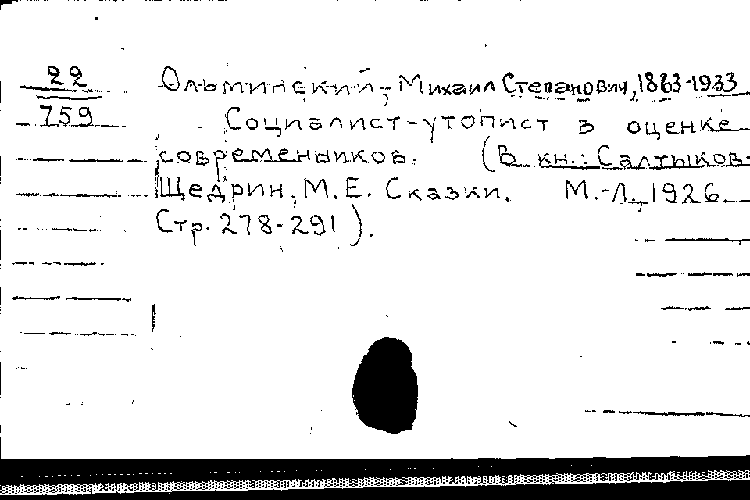 22
759
Ольминский, Михаил Степанович, 1863-1933
Социалист-утопист в оценке
современников. (В кн.: Салтыков-
Щедрин, М.Е. Сказки. М.-Л., 1926.
Стр. 278-291).